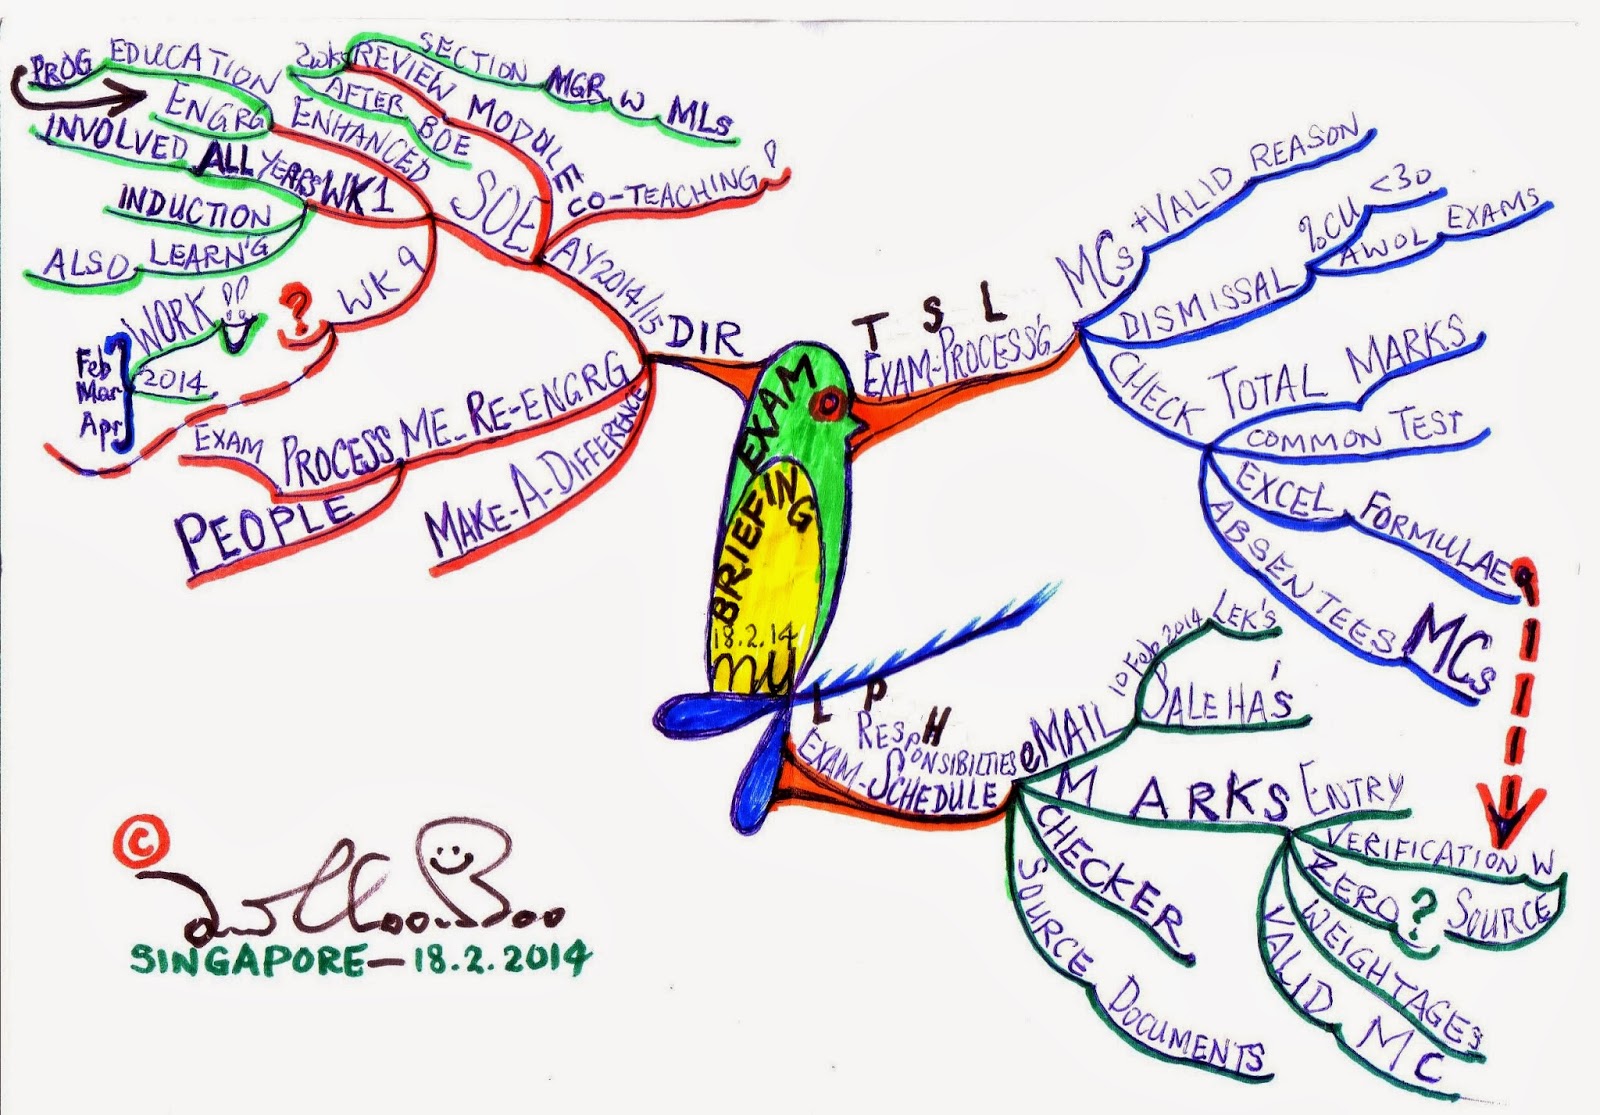 EXAM
BRIEFING
18.2.14
my
DIR
AY2014/15
SOE
CO-TEACHING!
REVIEW MODULE
2wks
SECTION MGR W MLs
AFTER BOE
ENHANCED
ENGRG
EDUCATION
PROG
WK1
INVOLVED ALL YEARS
INDUCTION
ALSO LEARN'G
WK 9
?
WORK!!
2014
Feb
Mar
Apr
PROCESS ME_RE-ENGRG
EXAM
PEOPLE
MAKE-A-DIFFERENCE
T S L
EXAM-PROCESS'G
MCs + VALID REASON
DISMISSAL
%CU <30
AWOL EXAMS
CHECK
TOTAL MARKS
COMMON TEST
EXCEL FORMULAE
ABSENTEES MCs
L P H
RESPONSIBILITIES
EXAM-SCHEDULE
eMAIL
10 Feb 2014 LEK'S
SALEHA'S
MARKS
ENTRY
VERIFICATION W
SOURCE
ZERO ?
WEIGHTAGES
VALID MC
CHECKER
SOURCE DOCUMENTS
©
SINGAPORE—18.2.2014